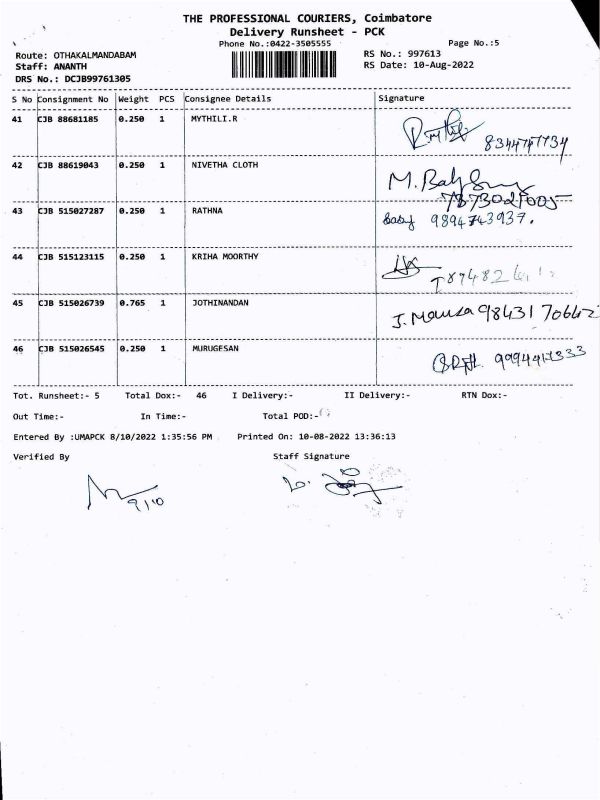 THE PROFESSIONAL COURIERS, Coimbatore
Delivery Runsheet - PCK
Phone No.:0422-3505555
Page No.:5
Route: OTHAKALMANDABAM
RS No.: 997613
Staff: ANANTH
RS Date: 10-Aug-2022
DRS No.: DCJB99761305
S No Consignment No Weight PCS Consignee Details Signature
41 CJB 88681185 0.250 1 MYTHILI.R
42 CJB 88619043 0.250 1 NIVETHA CLOTH
43 CJB 515027287 0.250 1 RATHNA 9894743937.
44 CJB 515123115 0.250 1 KRIHA MOORTHY
45 CJB 515026739 0.765 1 JOTHINANDAN
46 CJB 515026545 0.250 1 MURUGESAN
Tot. Runsheet:- 5 Total Dox:- 46 I Delivery:- II Delivery:- RTN Dox:-
Out Time:- In Time:- Total POD:-
Entered By :UMAPCK 8/10/2022 1:35:56 PM Printed On: 10-08-2022 13:36:13
Verified By Staff Signature